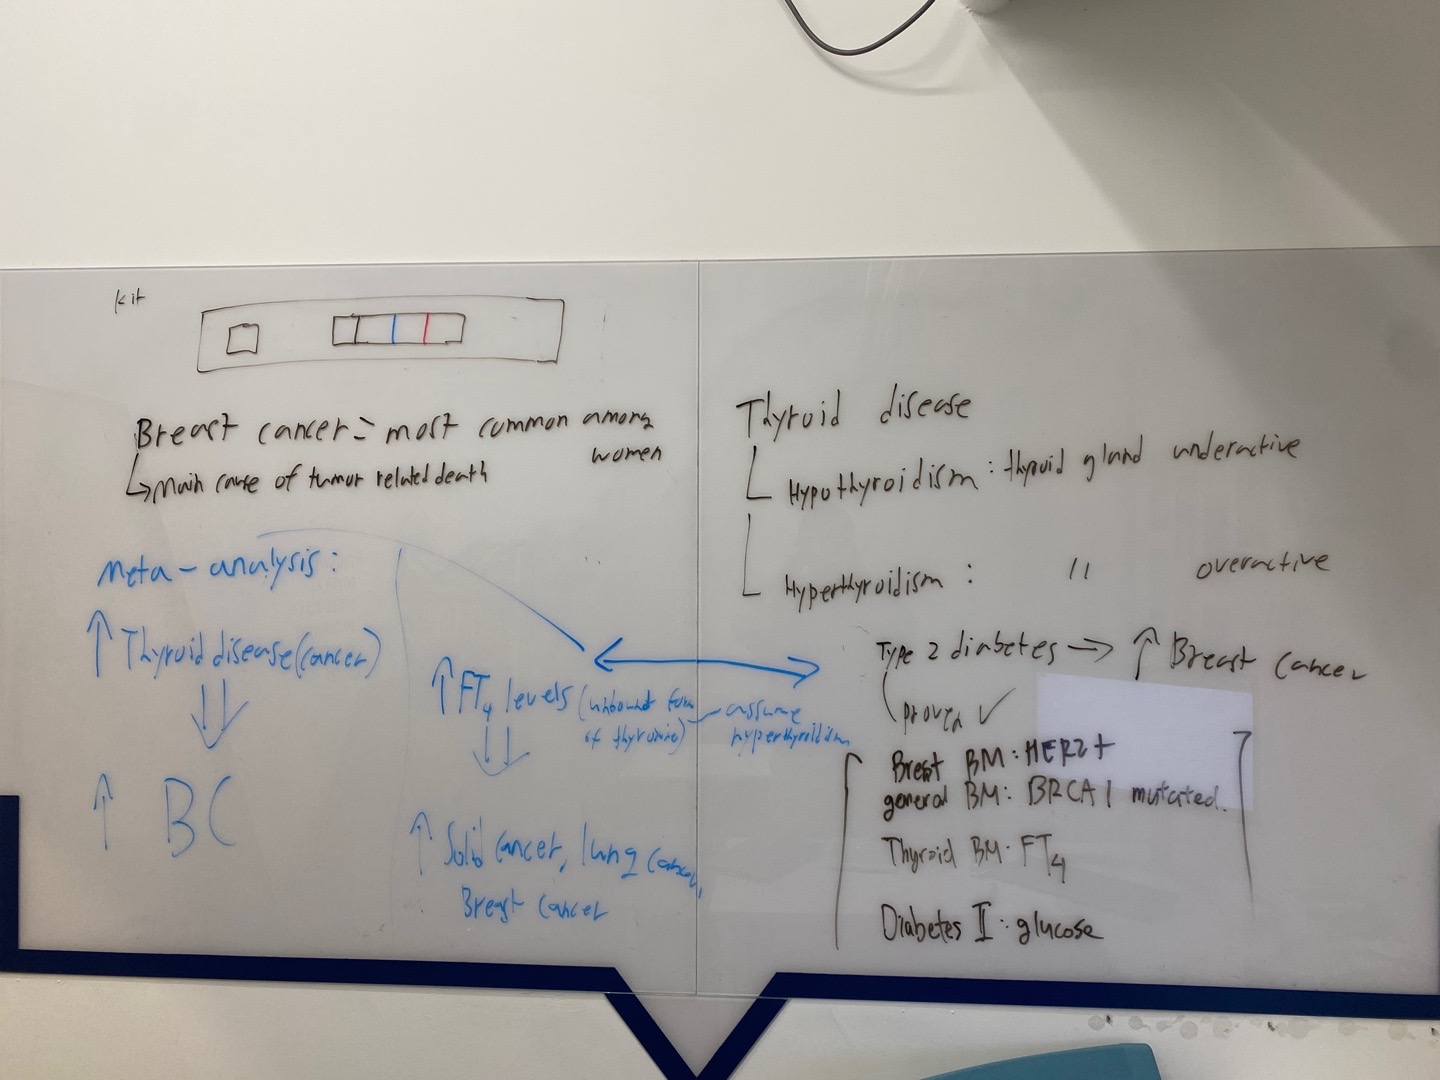 Kit
Breast cancer = most common among
women
↳ main cause of tumor related death
Meta-analysis:
↑ Thyroid disease (cancer)
↑ BC
↑ FT4 levels (unbound form
of thyroxine)
assume
hyperthyroidism
↑ Solid cancer, lung cancer,
Breast cancer
Thyroid disease
Hypothyroidism : thyroid gland underactive
Hyperthyroidism : " overactive
Type 2 diabetes → ↑ Breast cancer
proven ✓
Breast BM: HER2+
general BM: BRCA1 mutated.
Thyroid BM: FT4
Diabetes II: glucose